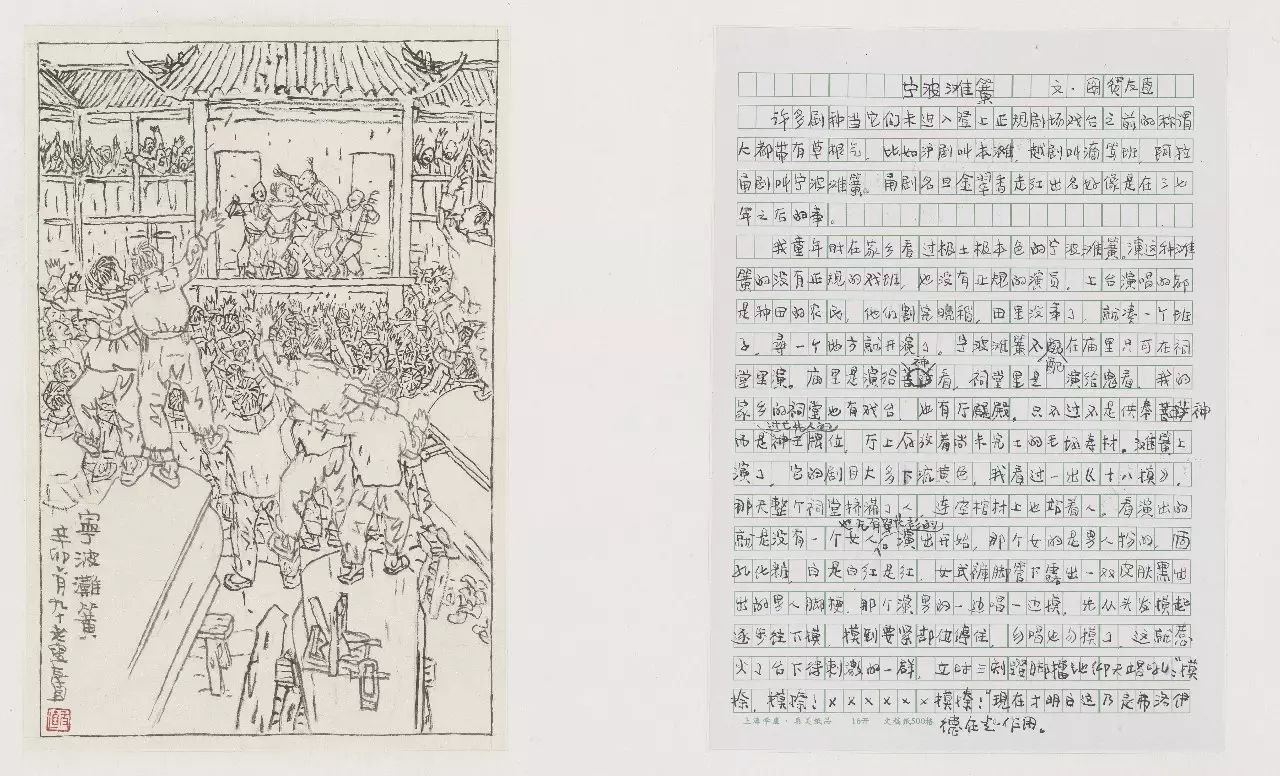 寧波灘簧
辛卯六月九十老叟
宁波滩簧　文·
许多剧种当它们未进入登上正规剧场戏台之前的称谓
大都带有草根气，比如沪剧叫本滩，越剧叫滴笃班，阿拉
甬剧叫宁波滩簧。甬剧名旦金翠香走红出名好像是在三七
年之后的事。
我童年时在家乡看过极土极本色的宁波滩簧。演这种滩
簧的没有正规的戏班，也没有正规的演员，上台演唱的都
是种田的农民，他们割完晚稻，田里没事了，就凑一个班
子，寻一个地方就开演了。宁波滩簧不配在庙里只可在祠
堂里演。庙里是演给神看，祠堂里是演给鬼看。我的
家乡的祠堂也有戏台，也有厅殿。只不过不是供奉菩萨神
而是过世人的神主牌位，厅上应该着尚未完工的毛坯寿材。滩簧上
演了，它的剧目大多下流黄色，我看过一出《十八摸》，
那天整个祠堂挤满了人，连空棺材上也站着人。看演出的
就是没有一个女人。演出开始，那个女的是男人扮的，面
孔化粧，白是白红是红，女式裤脚管下露出一双皮肤黑出
出的男人脚梗，那个演男的一边唱一边摸，先从头发摸起
逐步往下摸，摸到要紧部位停住，勿唱也勿摸了，这就惹
火了台下待刺激的一群，立时三刻
捺，摸捺！××××××摸捺！"现在才明白这乃是弗洛伊
德在起作用。
上海学庸·吴美纸品　16开　文稿纸500格